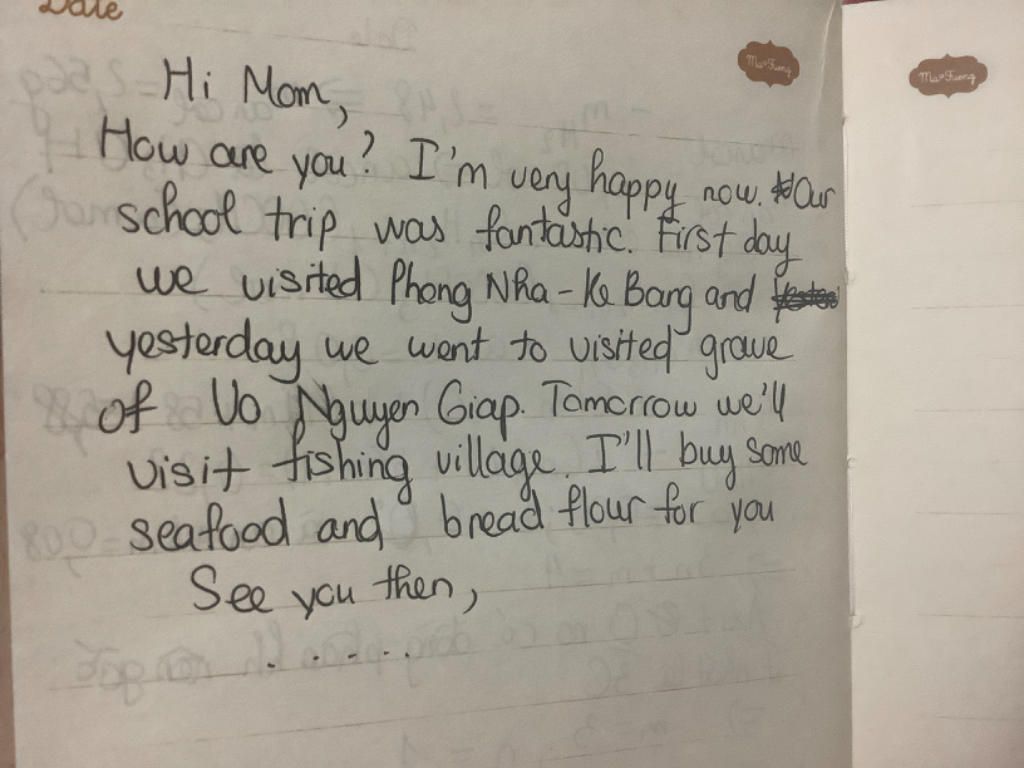 Date
Hi Mom,
How are you? I'm very happy now. Our
school trip was fantastic. First day
we visited Phong Nha - Ke Bang and
yesterday we went to visited grave
of Vo Nguyen Giap. Tomorrow we'll
visit fishing village. I'll buy some
seafood and bread flour for you
See you then,
. . . . .